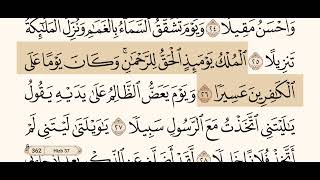 وَأَحْسَنُ مَقِيلًا ٢٤ وَيَوْمَ تَشَقَّقُ ٱلسَّمَآءُ بِٱلْغَمَٰمِ وَنُزِّلَ ٱلْمَلَٰٓئِكَةُ
تَنزِيلًا ٢٥ ٱلْمُلْكُ يَوْمَئِذٍ ٱلْحَقُّ لِلرَّحْمَٰنِ ۚ وَكَانَ يَوْمًا عَلَى
ٱلْكَٰفِرِينَ عَسِيرًا ٢٦ وَيَوْمَ يَعَضُّ ٱلظَّالِمُ عَلَىٰ يَدَيْهِ يَقُولُ
يَٰلَيْتَنِى ٱتَّخَذْتُ مَعَ ٱلرَّسُولِ سَبِيلًا ٢٧ يَٰوَيْلَتَىٰ لَيْتَنِى لَمْ
أَتَّخِذْ فُلَانًا خَلِيلًا ٢٨ لَّقَدْ أَضَلَّنِى عَنِ
362 Hizb 37